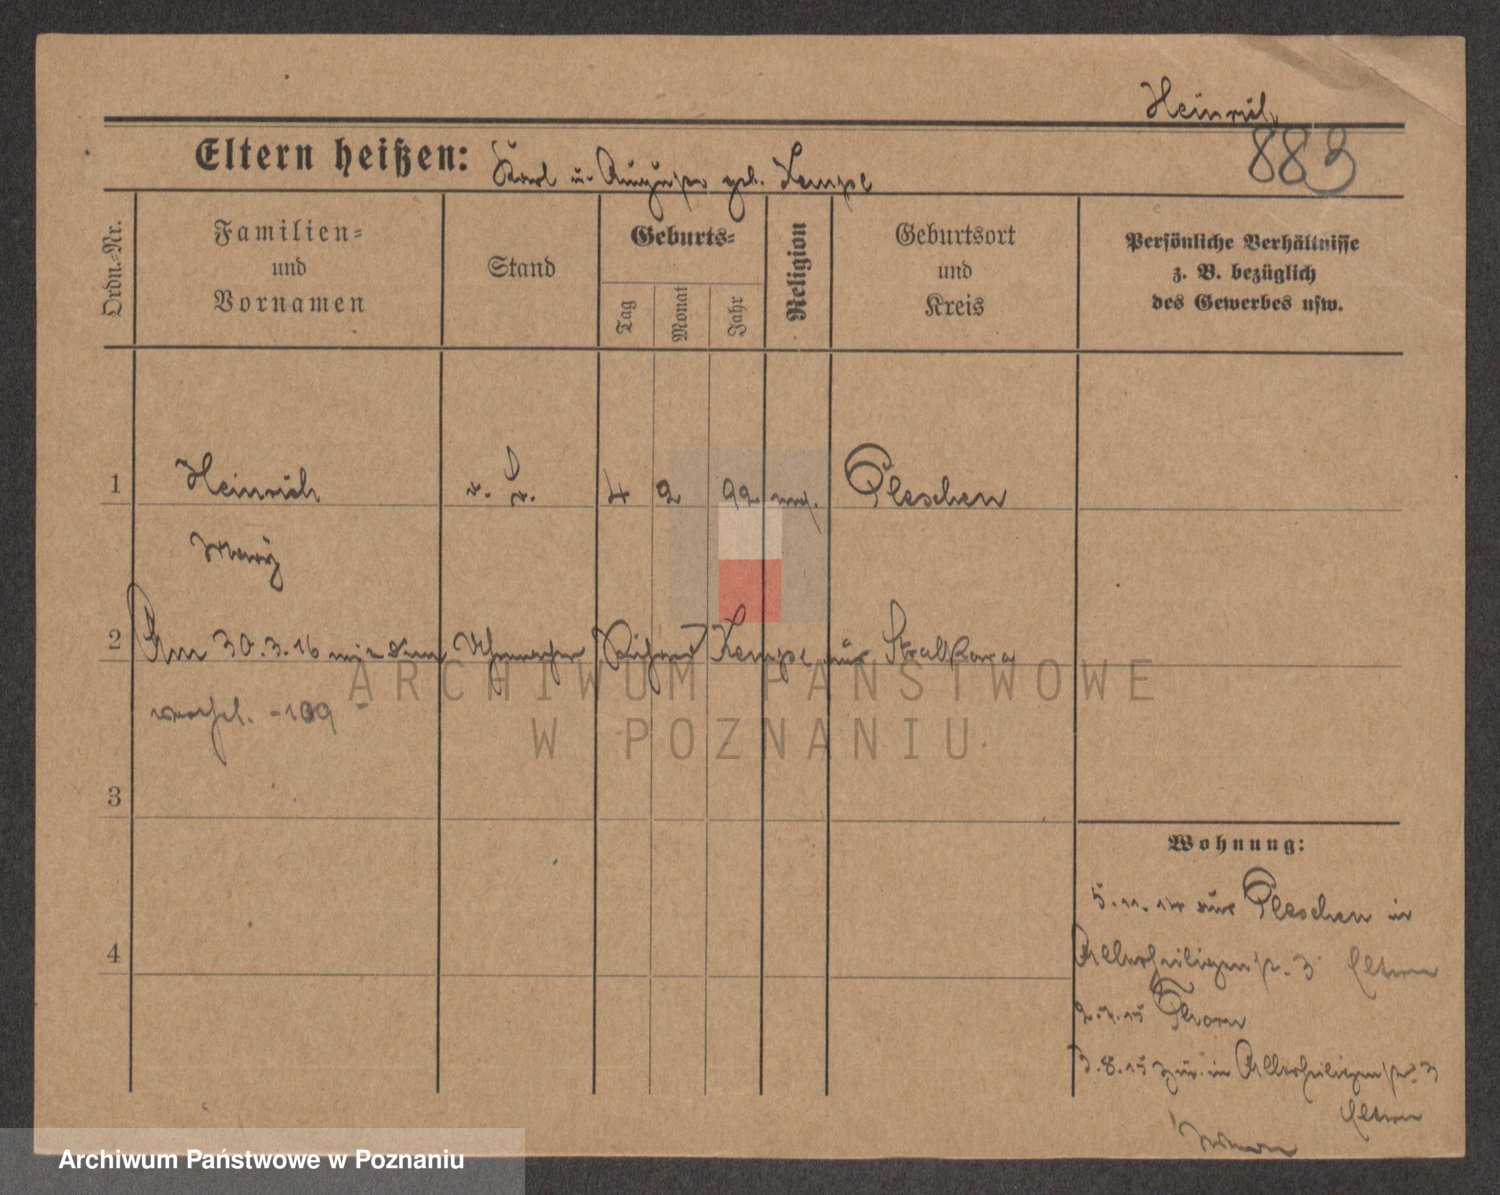 Heinrich
883
Eltern heißen: Karl u. Auguste geb. Kempe
Ordn.-Nr.
Familien-
und
Vornamen
Stand
Geburts-
Tag
Monat
Jahr
Religion
Geburtsort
und
Kreis
Persönliche Verhältnisse
z. B. bezüglich
des Gewerbes usw.
1 Heinrich 4 2 92 Pleschen
Mary
2 Am 30.3.16 mit dem Uhrmacher Richard Kempe aus Stralkowo
-109
3
4
Wohnung:
5.11.14 aus Pleschen in
Allerheiligenstr. 3 Eltern
2.7.15 Thorn
3.8.15 zur. in Allerheiligenstr. 3
Eltern
ARCHIWUM PAŃSTWOWE
W POZNANIU
Archiwum Państwowe w Poznaniu